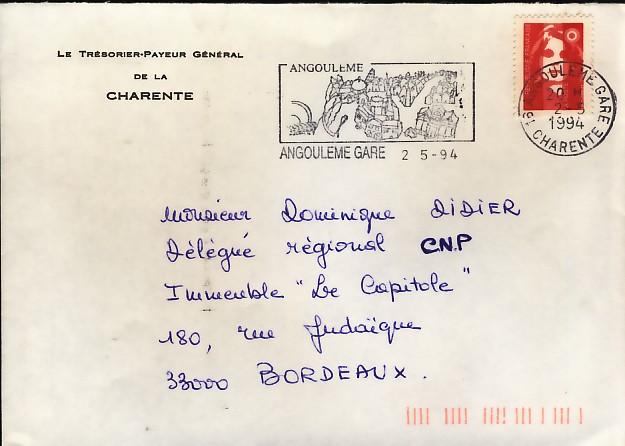 LE TRÉSORIER-PAYEUR GÉNÉRAL
DE LA
CHARENTE
ANGOULEME
ANGOULEME GARE 2 5-94
ANGOULEME GARE
20 H
2-5
1994
CHARENTE
Monsieur Dominique DIDIER
Délégué régional C.N.P
Immeuble "Le Capitole"
180, rue Judaïque
33000 BORDEAUX.